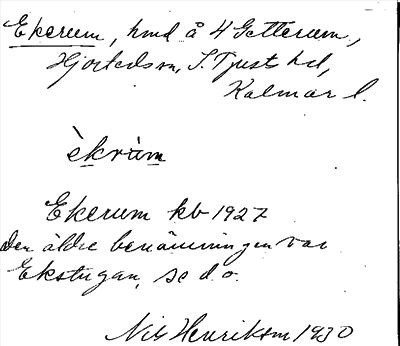 Ekerum, hmd å 4 Getterum,
Hjorteds sn, S. Tjusts hd,
Kalmar l.
èkrùm
Ekerum kb 1927
Den äldre benämningen var
Ekstugan, se d. o.
Nils Henriksson 1930